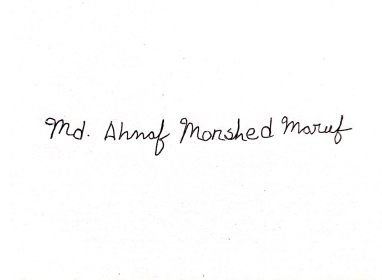 Md. Ahnaf Monshed Maruf